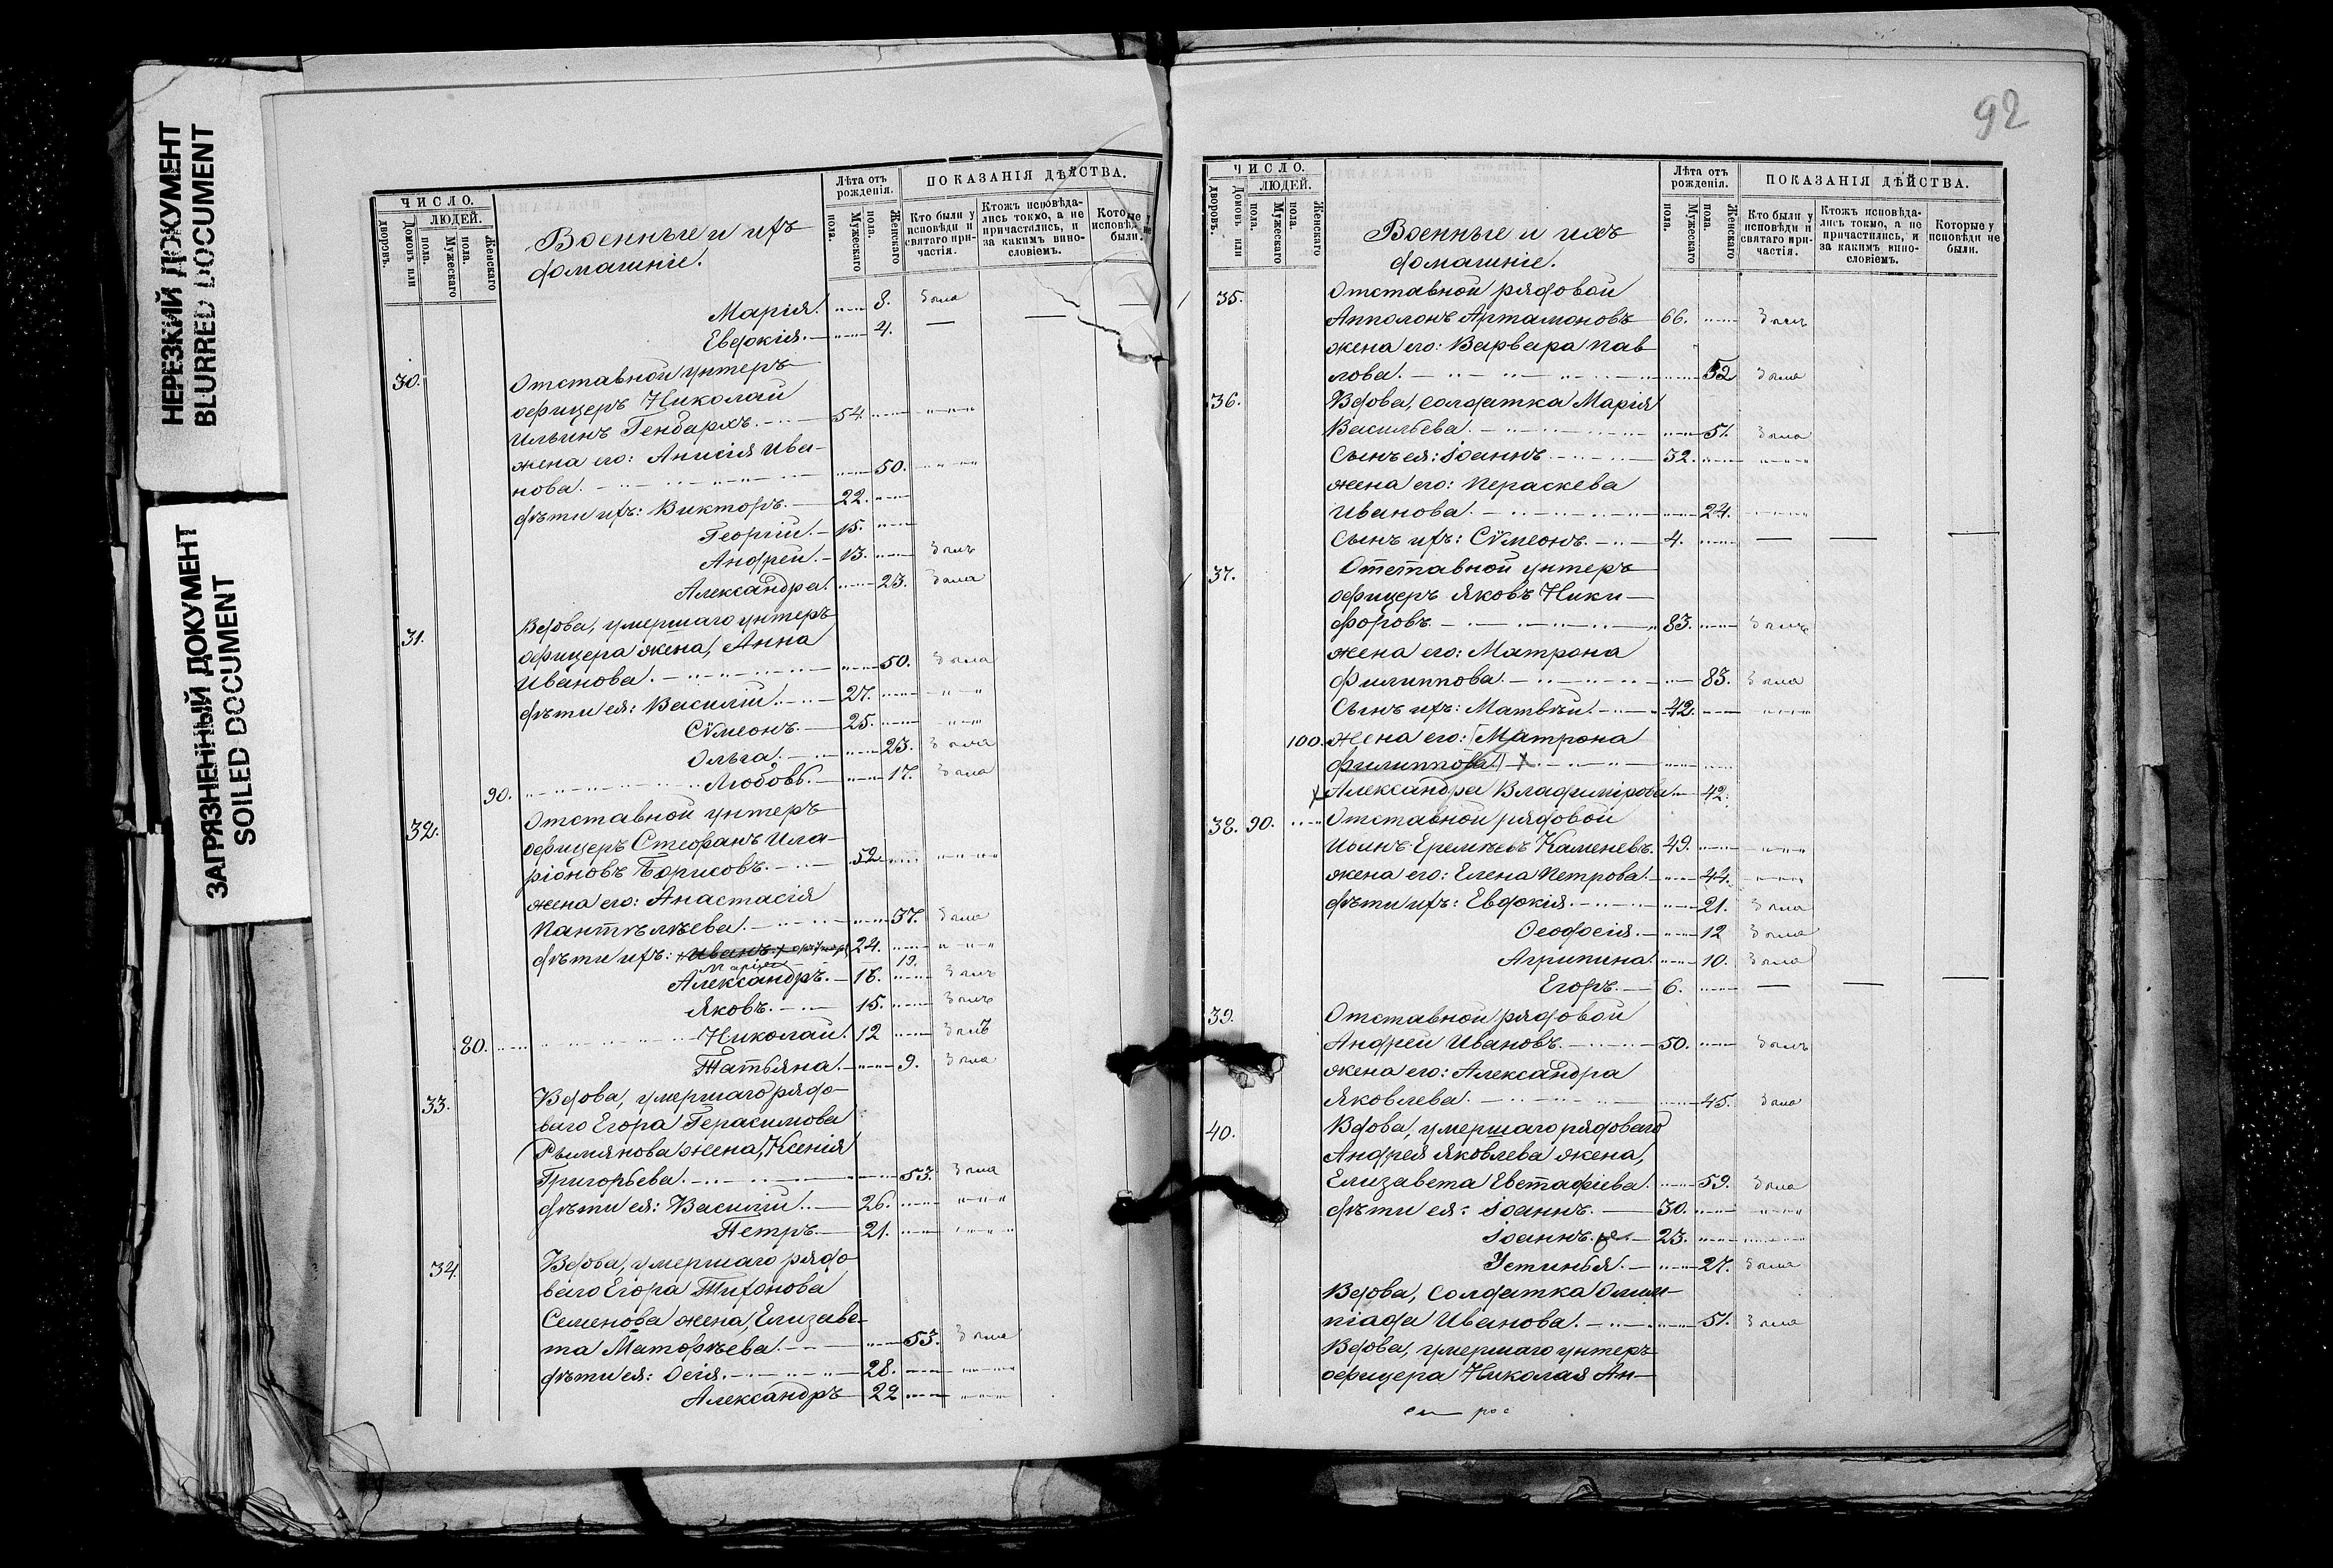 НЕРЕЗКИЙ ДОКУМЕНТ
BLURRED DOCUMENT
ЗАГРЯЗНЕННЫЙ ДОКУМЕНТ
SOILED DOCUMENT
ЧИСЛО.
ЛЮДЕЙ.
Домовъ или дворовъ.
Мужескаго пола.
Женскаго пола.
Военные и ихъ
домашніе.
Лѣта отъ рожденія.
Мужескаго пола.
Женскаго пола.
ПОКАЗАНІЯ ДѢЙСТВА.
Кто были у исповѣди и святаго причастія.
Ктожъ исповѣдались токмо, а не причастились, и за какимъ винословіемъ.
Которые у исповѣди не были.
Марія. 8. была
Евдокія. 4. —
30. Отставной унтеръ
офицеръ Николай
Ильинъ 54.
жена его: Анисія Ива-
нова. 50.
дѣти ихъ: Викторъ. 22.
Георгій. 15.
Андрей. 13. былъ
Александра. 23. была
31. Вдова, умершаго унтеръ
офицера жена, Анна
Иванова. 50. была
дѣти ея: Василій. 27.
Сѵмеонъ. 25.
Ольга. 23. была
90. Любовь. 17. была
32. Отставной унтеръ
офицеръ Стефанъ Ила-
ріоновъ Борисовъ. 52
жена его: Анастасія
Пантѣлѣева. 37. была
дѣти ихъ: Иванъ. 24.
Марія 19.
Александръ. 18. былъ
Яковъ. 15. былъ
80. Николай. 12 былъ
Татьяна. 9. была
33. Вдова, умершаго рядо-
ваго Егора Герасимова
жена, Ксенія
Григорьева. 53. была
дѣти ея: Василій. 26.
Петръ. 21.
34. Вдова, умершаго рядо-
ваго Егора Тихонова
Семенова жена, Елизаве-
та Матѳѣева. 53. была
дѣти ея: Осія. 28.
Александръ 22
92
ЧИСЛО.
ЛЮДЕЙ.
Домовъ или дворовъ.
Мужескаго пола.
Женскаго пола.
Военные и ихъ
домашніе.
Лѣта отъ рожденія.
Мужескаго пола.
Женскаго пола.
ПОКАЗАНІЯ ДѢЙСТВА.
Кто были у исповѣди и святаго причастія.
Ктожъ исповѣдались токмо, а не причастились, и за какимъ винословіемъ.
Которые у исповѣди не были.
35. Отставной рядовой
Апполонъ Артамоновъ 66. былъ
жена его: Варвара Пав
лова. 52 была
36. Вдова, солдатка Марія
Васильева. 51. была
Сынъ ея: Іоаннъ. 32.
жена его: Параскева
Иванова. 24.
Сынъ ихъ: Сѵмеонъ. 4. — — —
37. Отставной унтеръ
офицеръ Яковъ Ники-
форовъ. 83. былъ
жена его: Матрона
Филиппова. 83. была
Сынъ ихъ: Матвѣй. 42.
100. жена его: Матрона
Филиппова
Александра Владимірова. 42.
38. 90. Отставной рядовой
Еремѣевъ Каменевъ. 49.
жена его: Елена Петрова. 44.
дѣти ихъ: Евдокія. 21. была
Ѳеодосія. 12 была
Агрипина. 10. была
Егоръ. 6. — — —
39. Отставной рядовой
Андрей Ивановъ. 50. былъ
жена его: Александра
Яковлева. 45. была
40. Вдова, умершаго рядоваго
Андрея Яковлева жена,
Елизавета Евстафіева. 59. была
дѣти ея: Іоаннъ. 30.
Іоаннъ. 23.
Устинья. 27. была
Вдова, солдатка Олим-
піада Иванова. 51. была
Вдова, умершаго унтеръ
офицера Николая Ан-